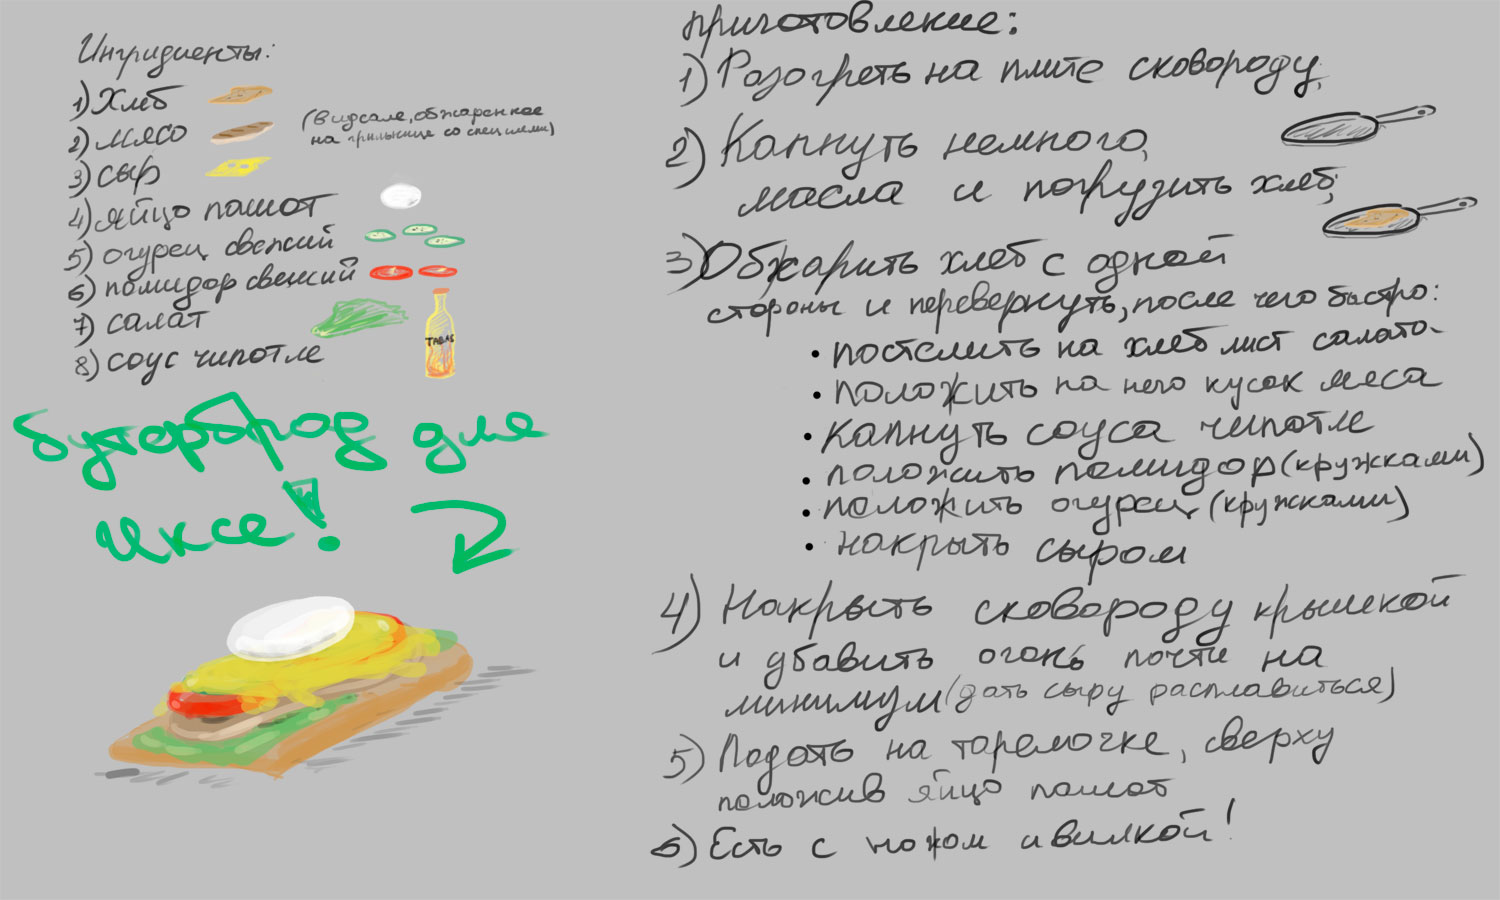 Ингридиенты:
1) Хлеб
2) мясо
(в идеале, обжаренное
на грильнице со специями)
3) сыр
4) яйцо пашот
5) огурец свежий
6) помидор свежий
7) салат
8) соус чипотле
TABAS
бутерброд для
Иксе!
приготовление:
1) Разогреть на плите сковороду,
2) Капнуть немного
масла и погрузить хлеб,
3) Обжарить хлеб с одной
стороны и перевернуть, после чего быстро:
• постелить на хлеб лист салата
• положить на него кусок мяса
• капнуть соуса чипотле
• положить помидор (кружками)
• положить огурец (кружками)
• накрыть сыром
4) Накрыть сковороду крышкой
и убавить огонь почти на
минимум (дать сыру расплавиться)
5) Подать на тарелочке, сверху
положив яйцо пашот
6) Есть с ножом и вилкой!